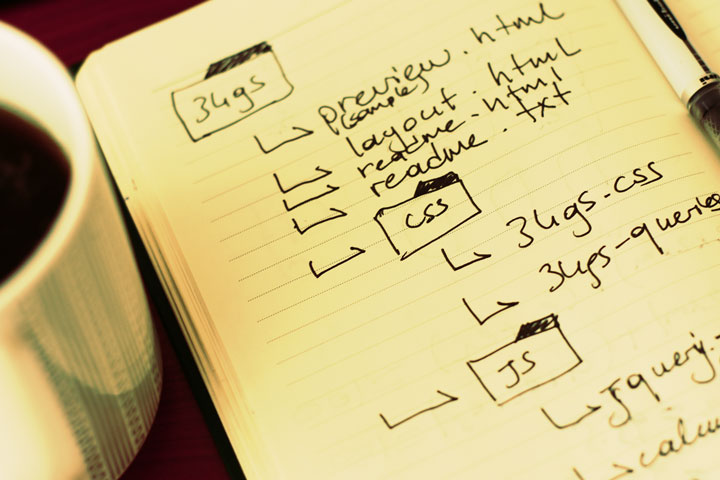 34gs
preview.html
(sample)
layout.html
readme.html
readme.txt
CSS
34gs.css
34gs-queries
JS
jquery.